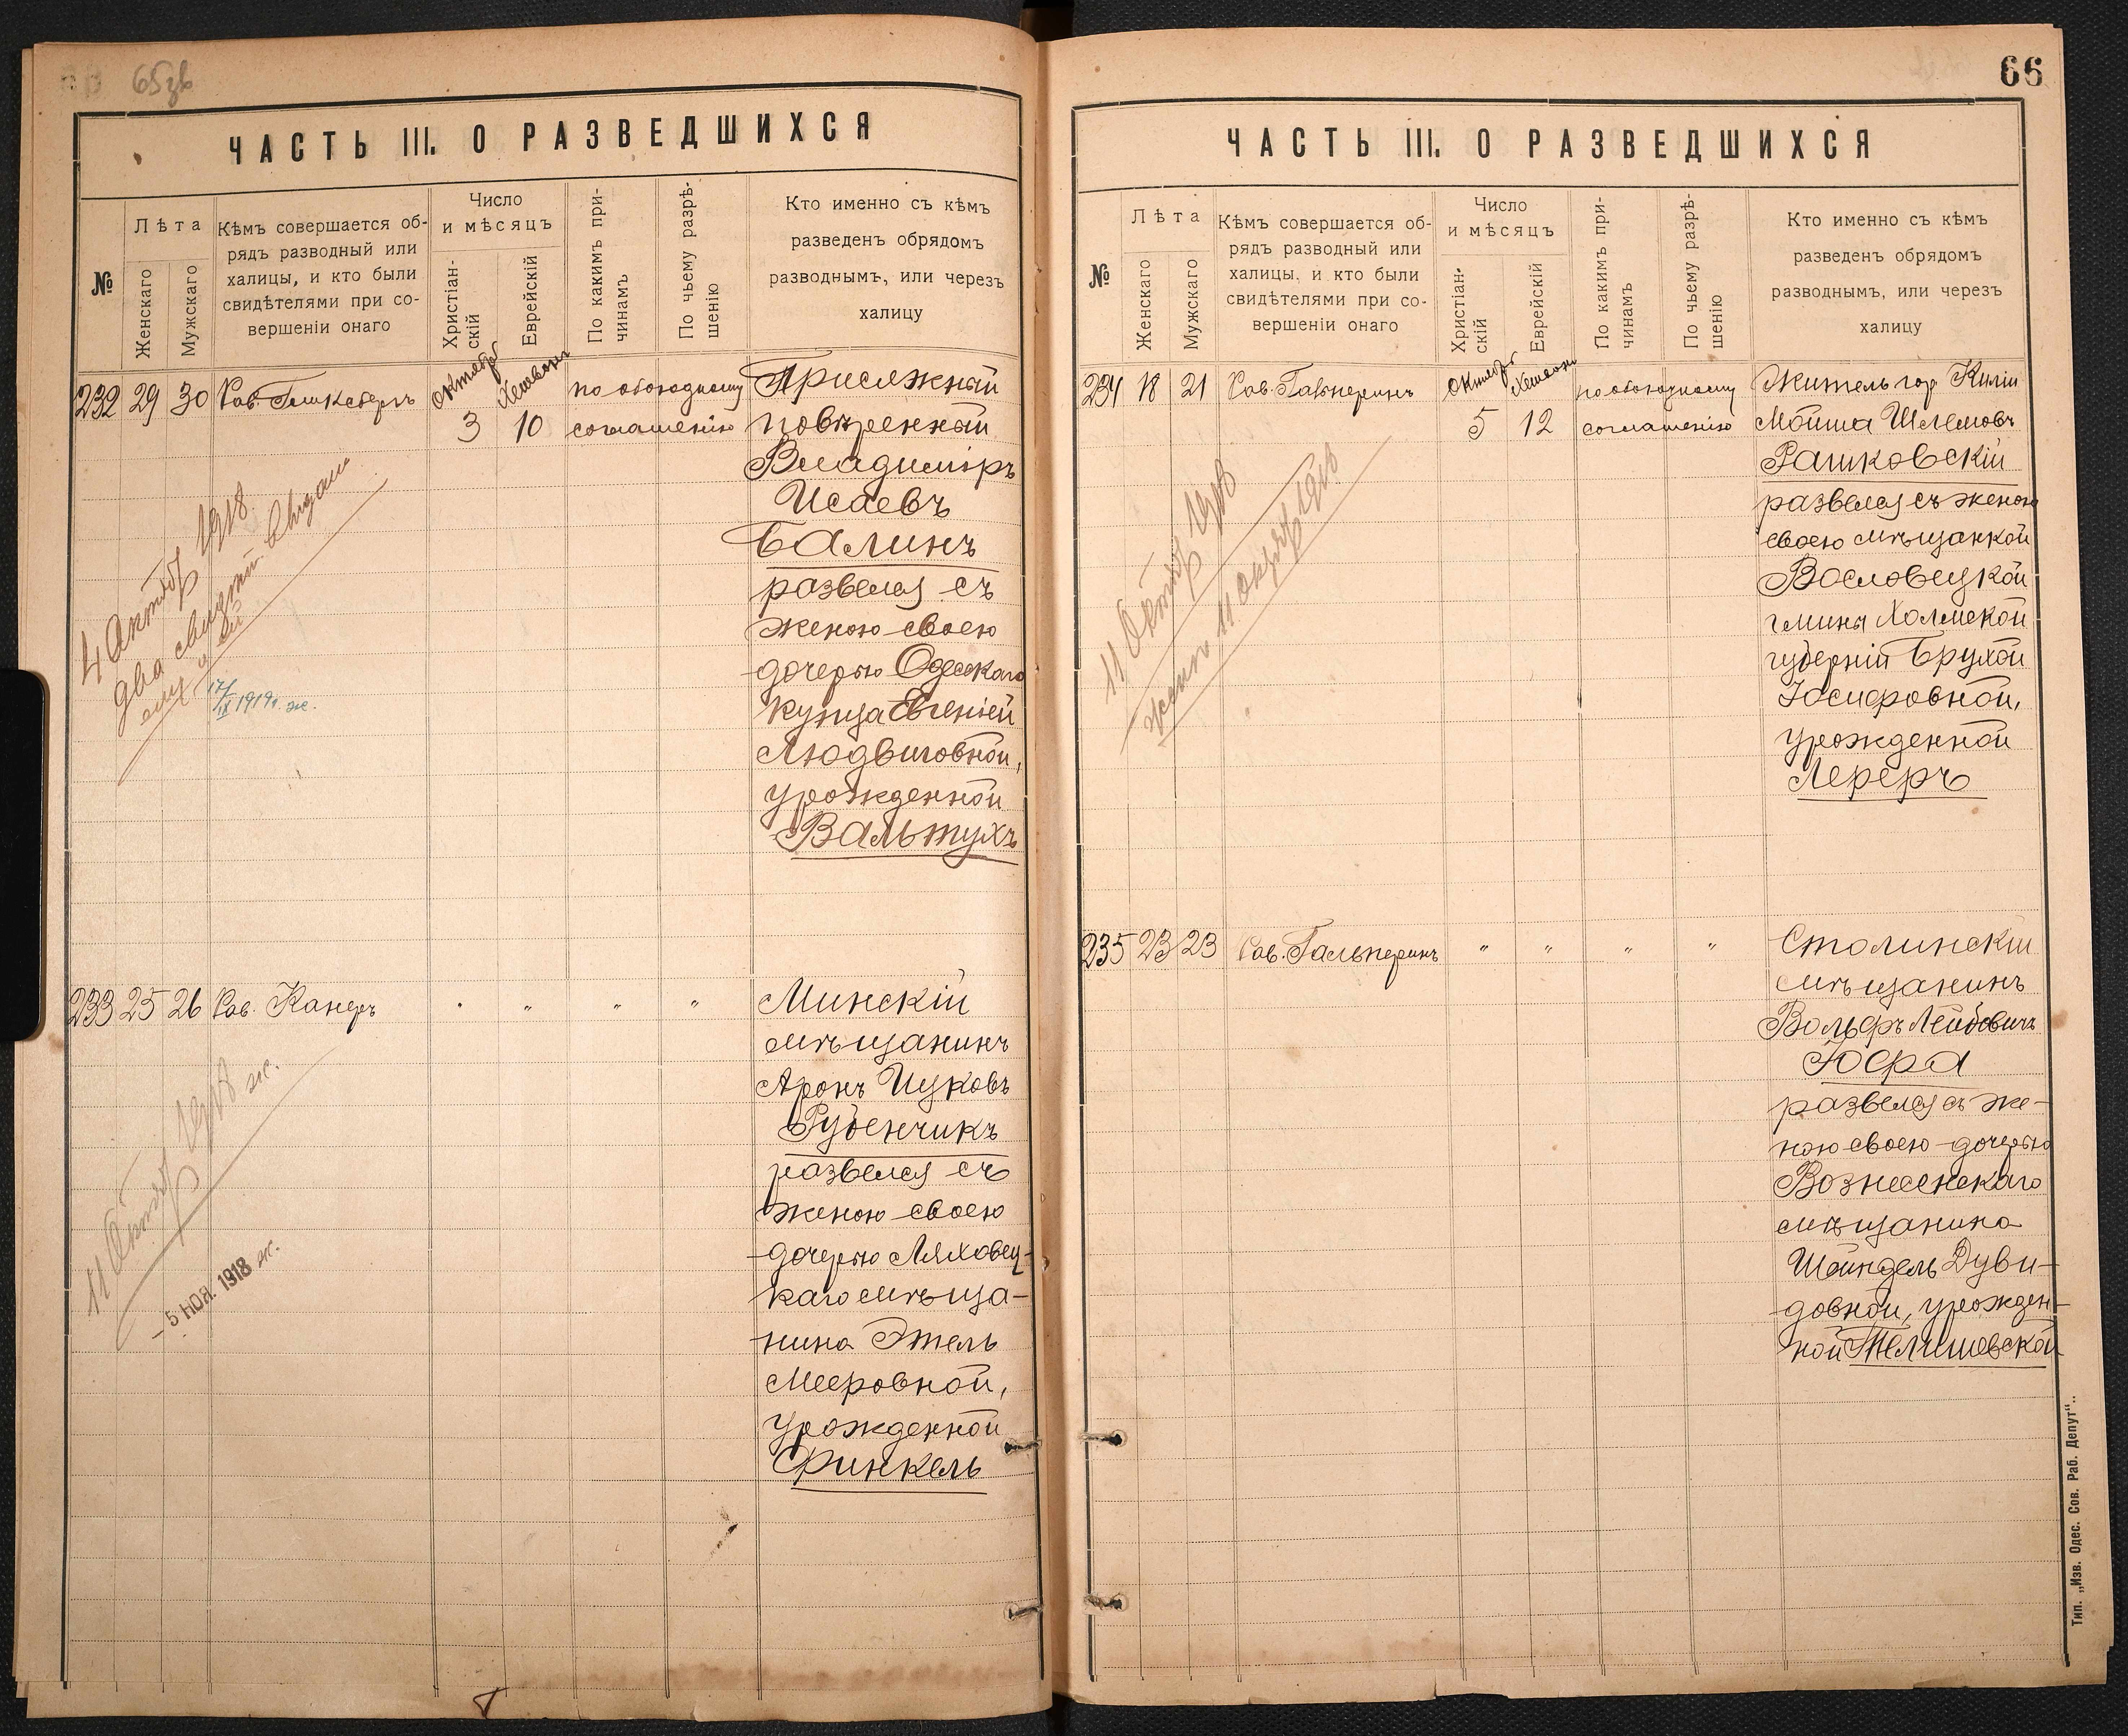 65зв
ЧАСТЬ III. О РАЗВЕДШИХСЯ
№
Лѣта
Женскаго
Мужскаго
Кѣмъ совершается об-
рядъ разводный или
халицы, и кто были
свидѣтелями при со-
вершеніи онаго
Число
и мѣсяцъ
Христіан-
скій
Еврейскій
По какимъ при-
чинамъ
По чьему разрѣ-
шенію
Кто именно съ кѣмъ
разведенъ обрядомъ
разводнымъ, или черезъ
халицу
232 29 30 Рав.
Октября
3
Хешвонъ
10
по обоюдному
соглашенію
Присяжный
повѣренный
Владиміръ
Исаевъ
Балинъ
развелся съ
женою своею
дочерью Одесскаго
купца Евгеніей
Людвиговной,
урожденной
Вальтухъ
4 Октяб 1918
два свидет. выданы
ему и ей
17/IX 1919 г. ж.
233 25 26 Рав. Канеръ " " " "
Минскій
мѣщанинъ
Аронъ Ицковъ
Рубенчикъ
развелся съ
женою своею
дочерью Ляховец-
каго мѣща-
нина Этель
Мееровной,
урожденной
Финкель
11 Октяб 1918 ж.
- 5 НОЯ. 1918 ж.
66
ЧАСТЬ III. О РАЗВЕДШИХСЯ
№
Лѣта
Женскаго
Мужскаго
Кѣмъ совершается об-
рядъ разводный или
халицы, и кто были
свидѣтелями при со-
вершеніи онаго
Число
и мѣсяцъ
Христіан-
скій
Еврейскій
По какимъ при-
чинамъ
По чьему разрѣ-
шенію
Кто именно съ кѣмъ
разведенъ обрядомъ
разводнымъ, или черезъ
халицу
234 18 21 Рав. Гальперинъ
Октября
5
Хешвонъ
12
по обоюдному
соглашенію
Житель гор Киліи
Мойша Шлемовъ
Рашковскій
развелся съ женою
своею мѣщанкой
Вословецкой
гмины Холмской
губерніи Брухой
Іосифовной,
урожденной
Лереръ
11 Октяб 1918
жен 11 Октяб 1918
235 23 23 Рав. Гальперинъ " " " "
Столинскій
мѣщанинъ
Вольфъ Лейбовичъ
Юфа
развелся съ же-
ною своею дочерью
Вознесенскаго
мѣщанина
Шейндель Дуви-
довной, урожден-
ной Телишевской
Тип. „Изв. Одес. Сов. Раб. Депут“.